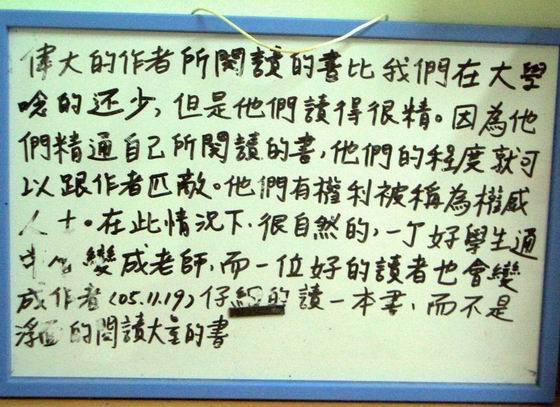 偉大的作者所閱讀的書比我們在大學
唸的还少，但是他們讀得很精。因為他
們精通自己所閱讀的書，他們的程度就可
以跟作者匹敵。他們有權利被稱為權威
人士。在此情況下，很自然的，一丁好學生通
變成老師，而一位好的讀者也會變
成作者(05.11.19)仔細的讀一本書，而不是
浮面的閱讀大量的書